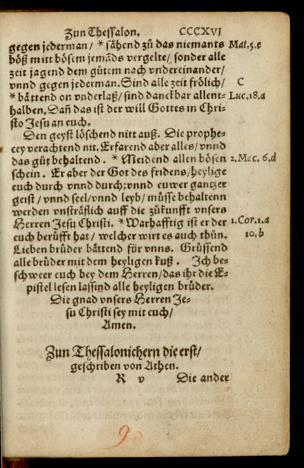 Zun Thessalon. CCCXVI
gegen jederman/ * sähend zů das niemants Mal.5.e
böß mitt bösem jemāds vergelte/ sonder alle
zeit jagend dem gůtem nach vndereinander/
vnnd gegen jederman. Sind alle zeit frölich/ C
* bättend on vnderlaß/ sind danckbar allent- Luc.18.a
halben. Dañ das ist der will Gottes in Chri-
sto Jesu an euch.
Den geyst löschend nitt auß. Die prophe-
cey verachtend nit. Erfarend aber alles/ vnnd
das gůt behaltend. * Meidend allen bösen 2.Mac.6.d
schein. Er aber der Got des fridens/ heylige
euch durch vnnd durch: vnnd euwer gantzer
geist/ vnnd seel/ vnnd leyb/ müsse behaltenn
werden vnsträflich auff die zůkunfft vnsers
Herren Jesu Christi. * Warhafftig ist er der 1.Cor.1.a
euch berüfft hat/ welcher wirt es auch thůn. 10.b
Lieben brüder bättend für vnns. Grüssend
alle brüder mit dem heyligen kuß. Jch be-
schweer euch bey dem Herren/ das ihr die E-
pistel lesen lassind alle heyligen brüder.
Die gnad vnsers Herren Je-
su Christi sey mit euch/
Amen.
Zun Thessalonichern die erst/
geschriben von Athen.
R v Die ander